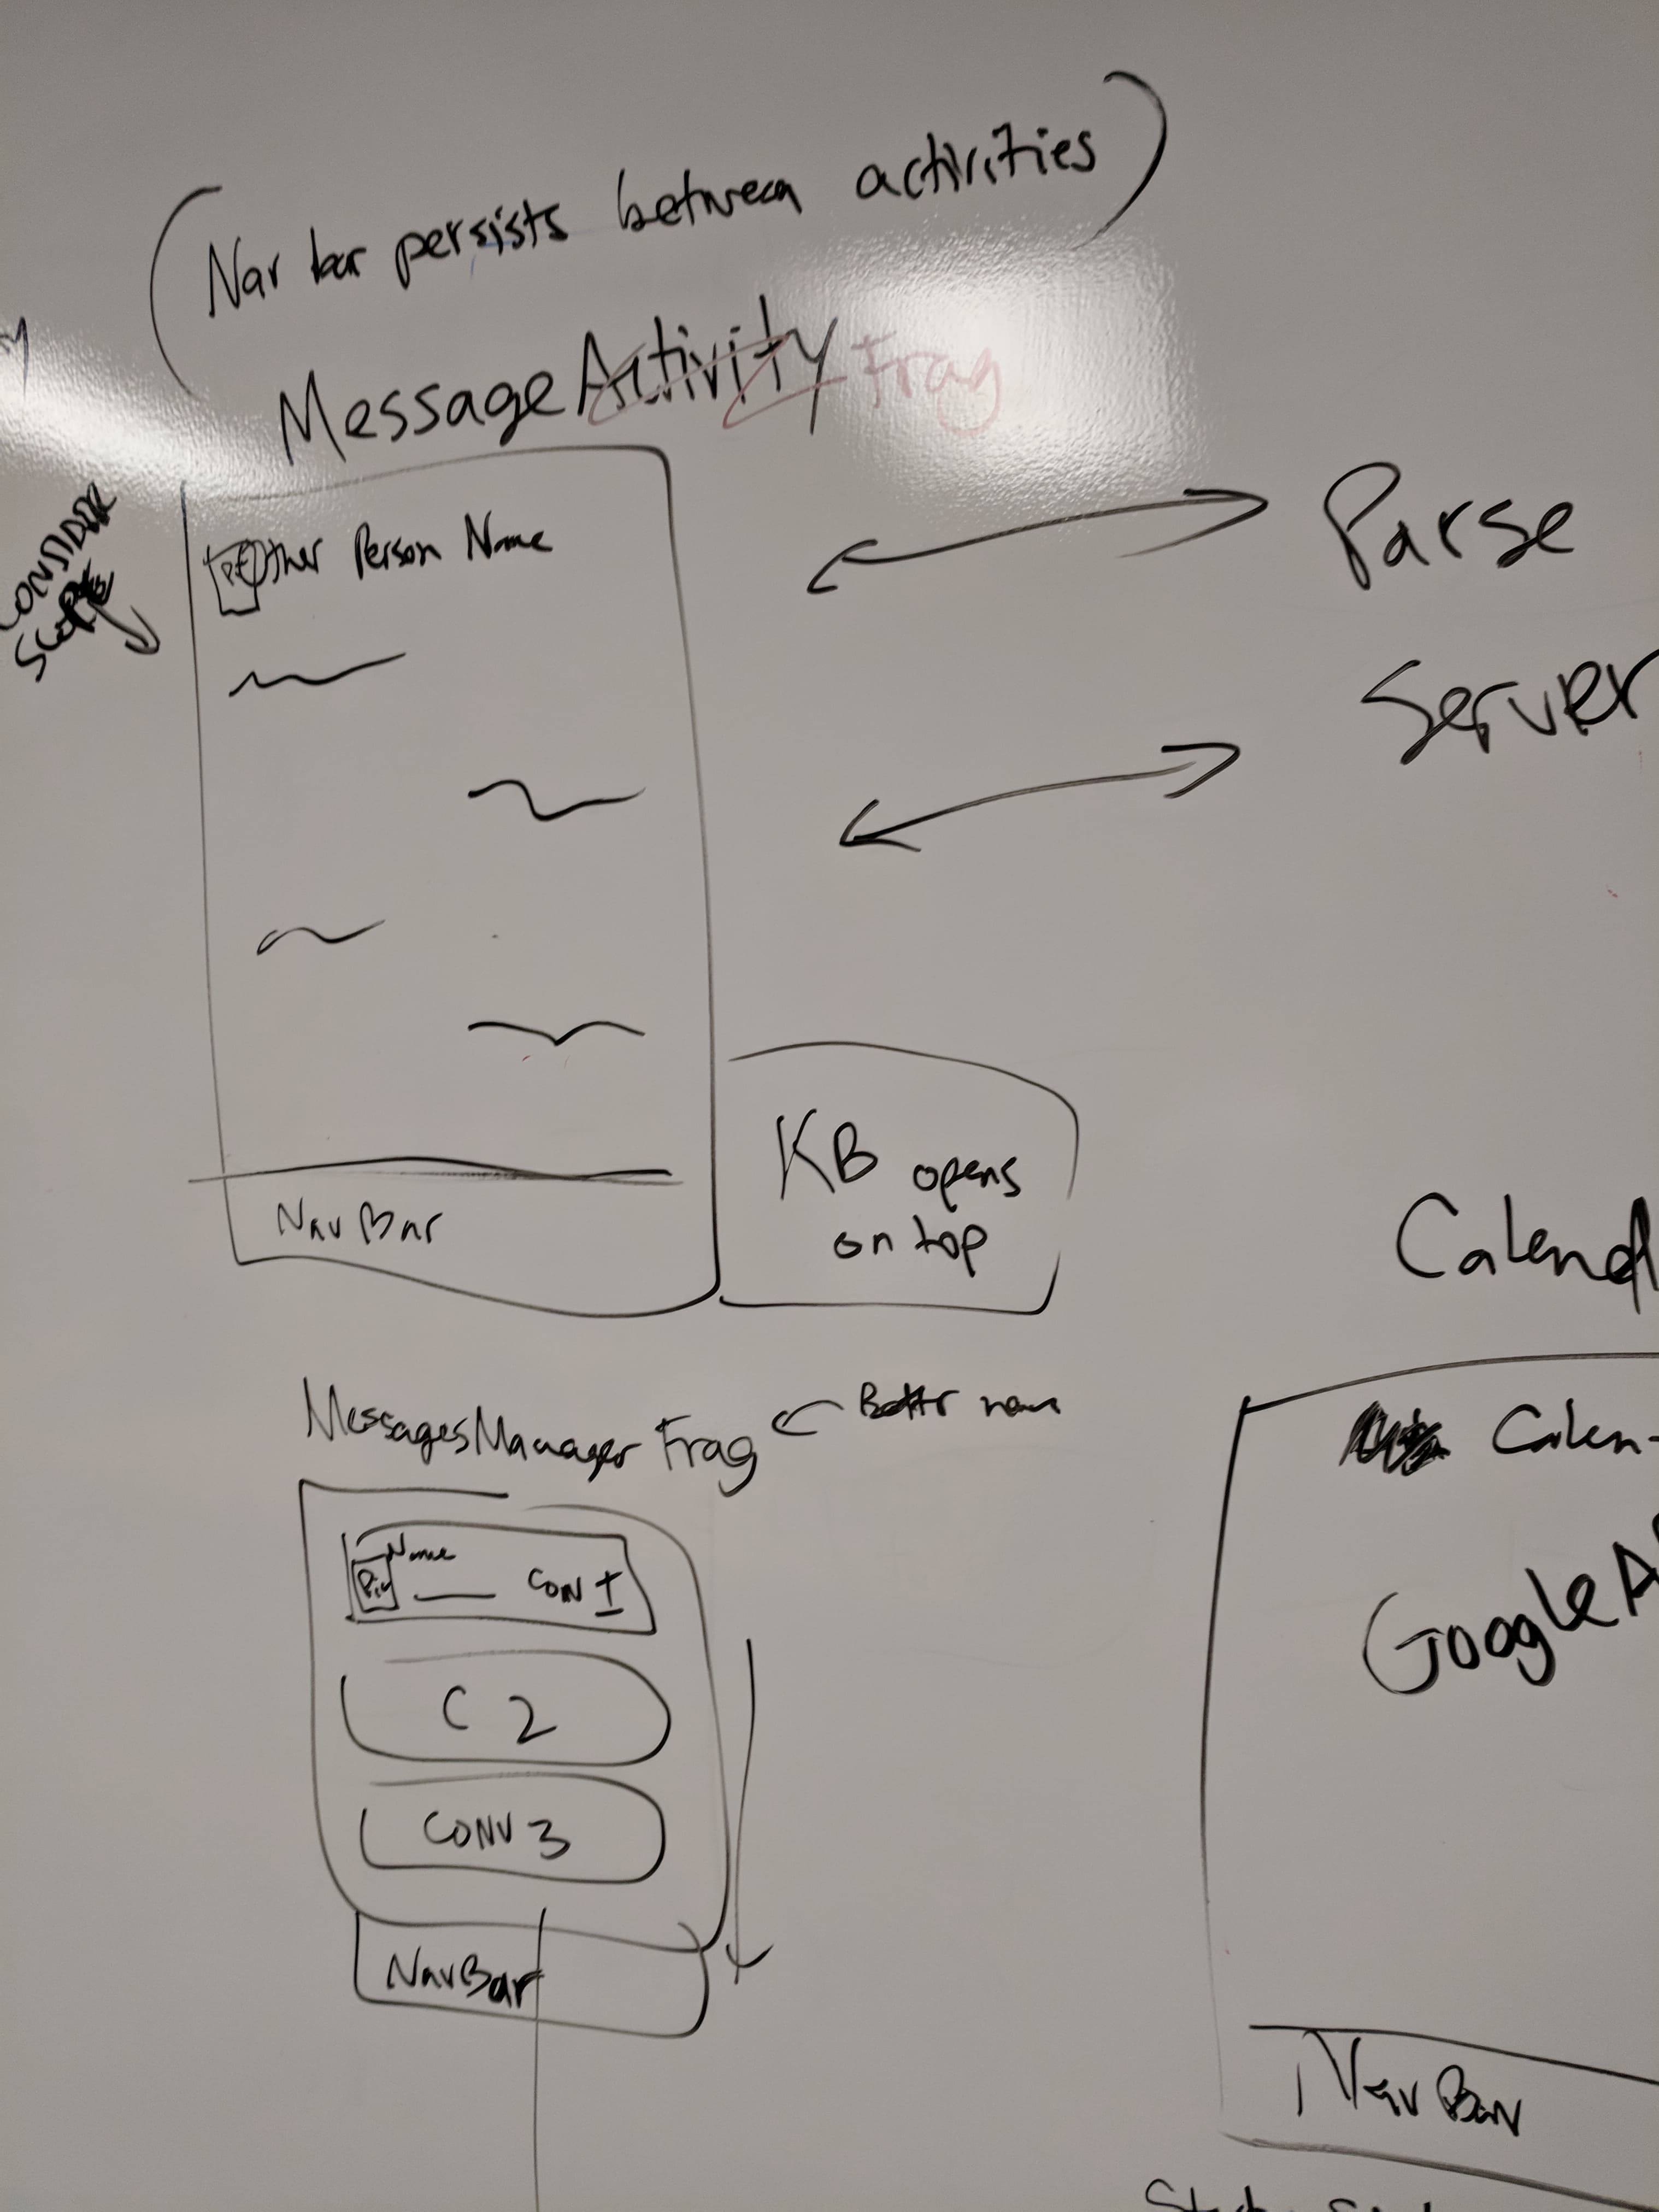 (Nav bar persists between activities)
MessageActivity Frag
CONSIDER
SCOPE
Other Person Name
Parse
Server
KB opens
on top
NavBar
Calend
MessagesManager Frag
Calen-
Name
Pic
CON 1
GoogleA
C 2
CONV 3
NavBar
NavBar